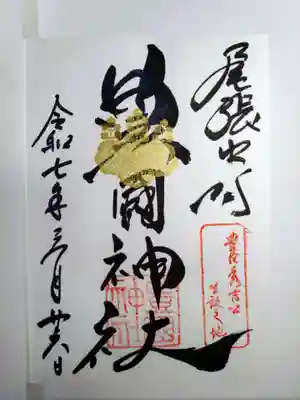 尾張中村
豊臣秀吉公
生誕之地
豊國神社
令和七年三月